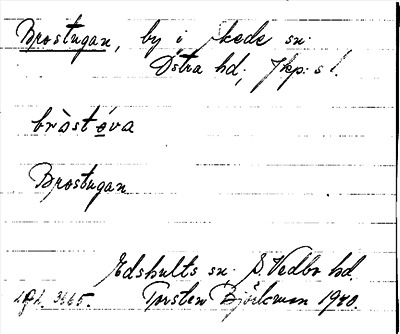 Brostugan, by i Skede sn.
Östra hd; Jkp:s l.
bròst óva
Brostugan
Edshults sn. S. Vedbo hd.
3665. Torsten Björkman 1940.